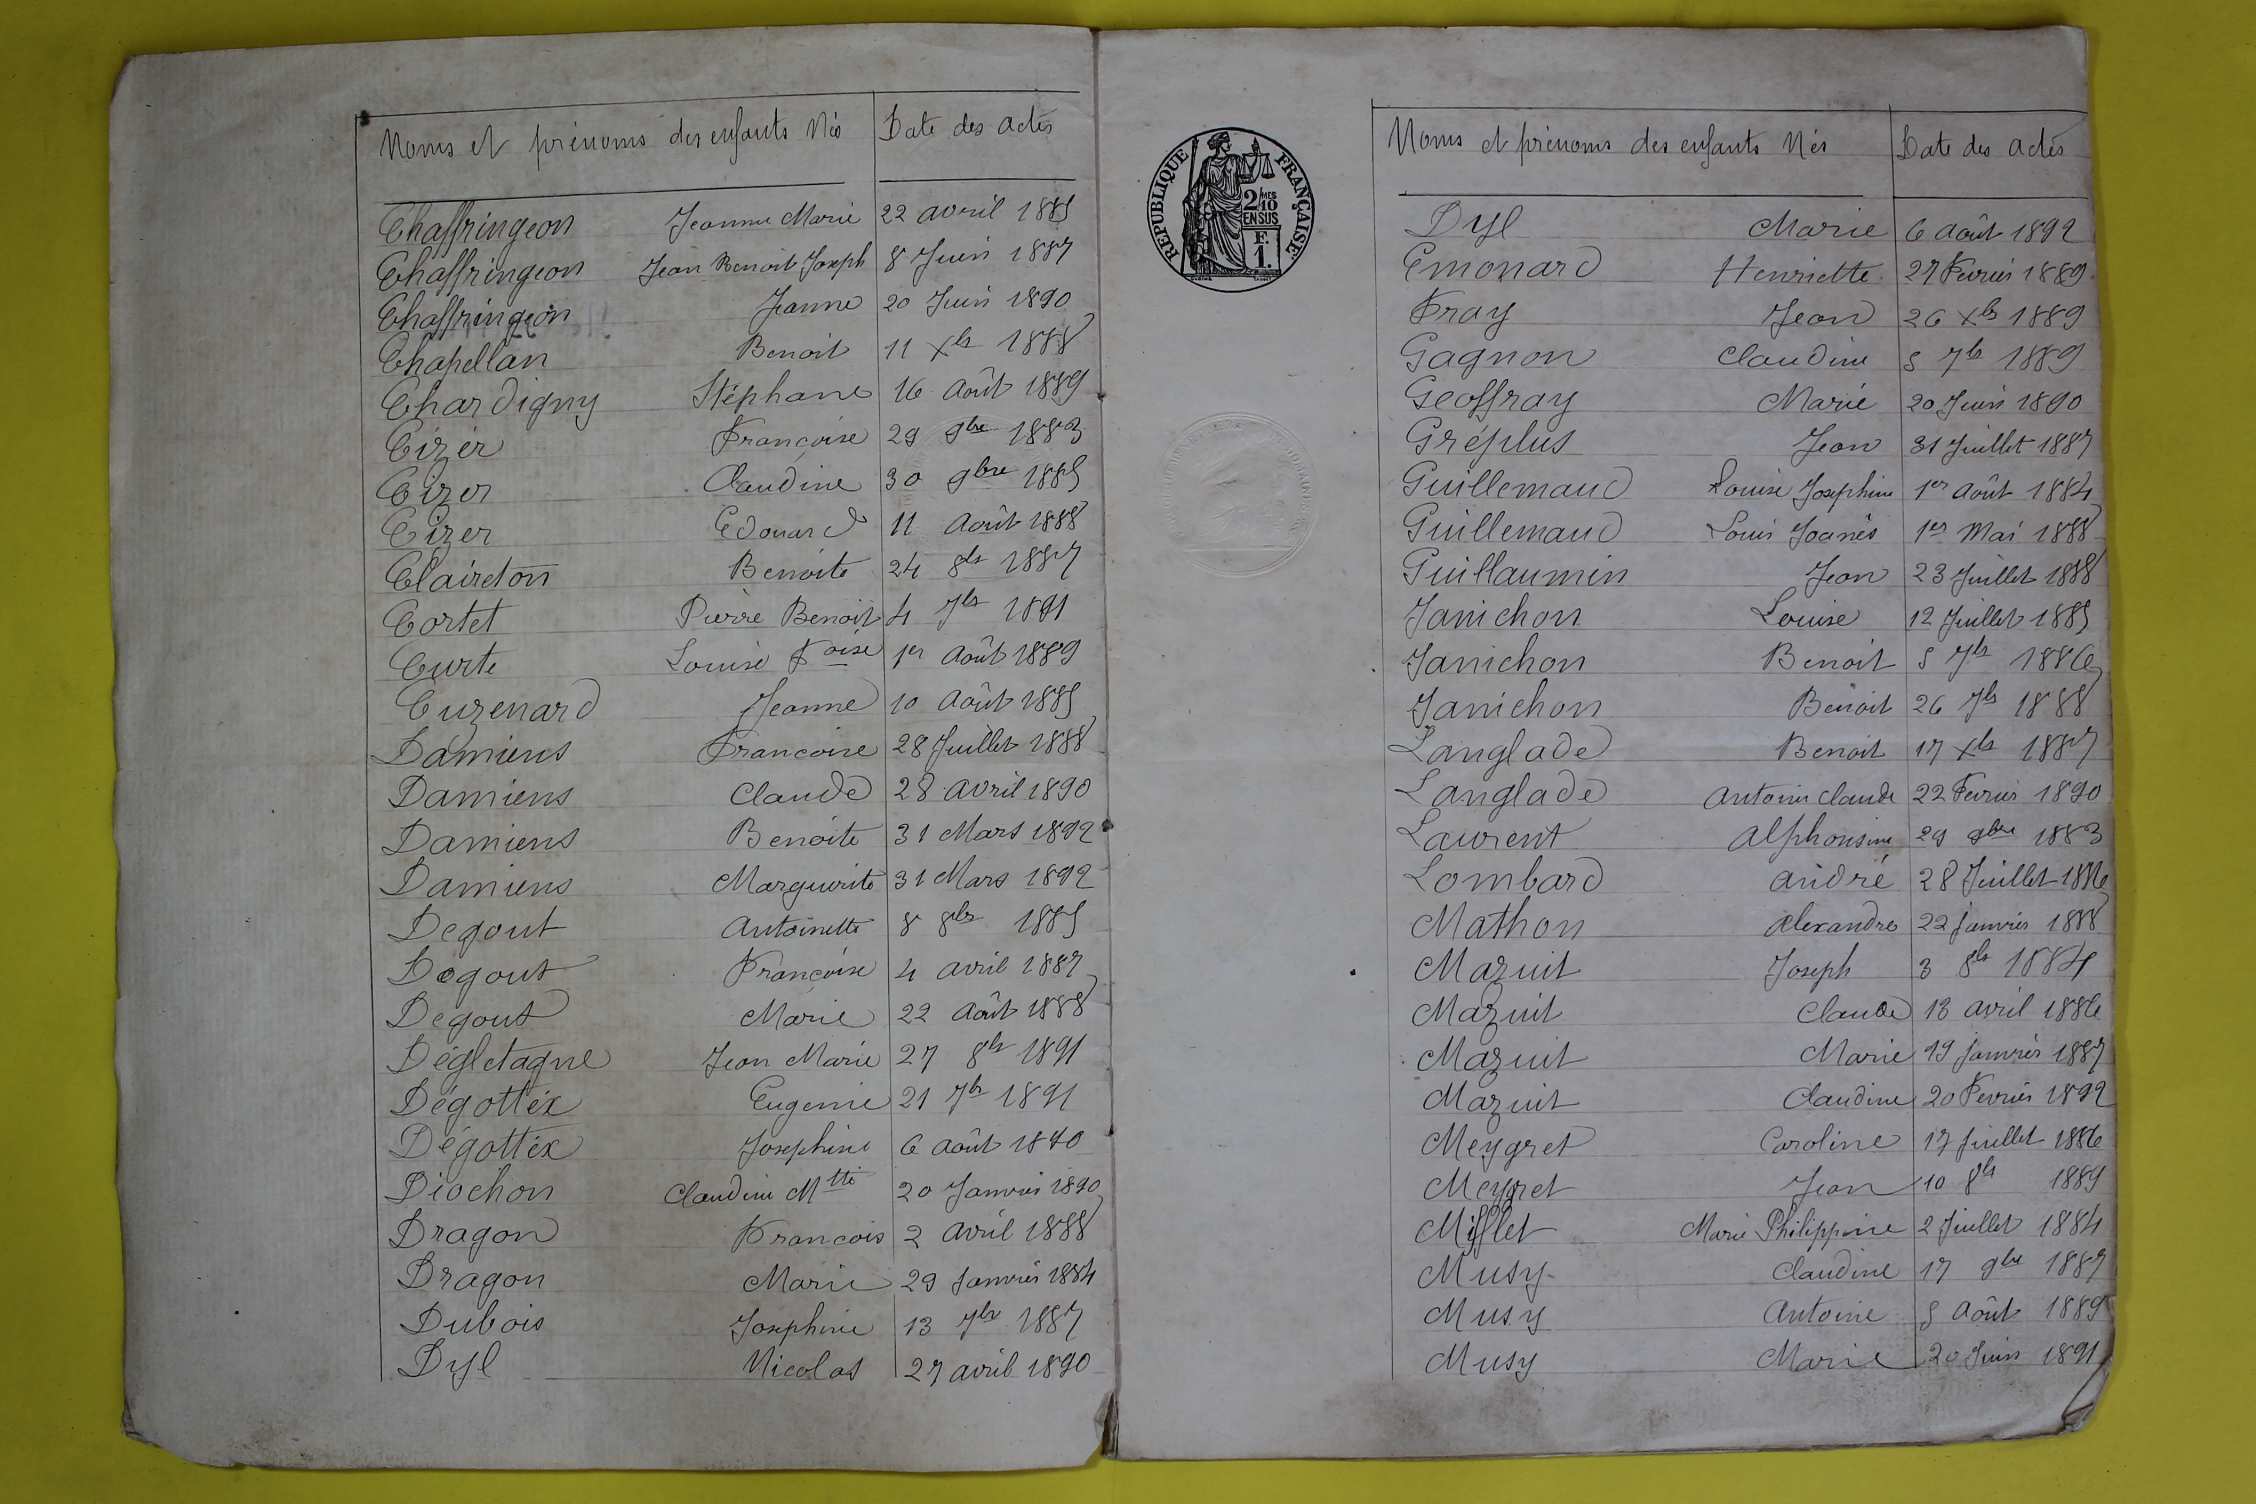 Noms et prénoms des enfants Nés Date des actes
Chaffringeon Jeanne Marie 22 avril 1885
Chaffringeon Jean Benoit Joseph 8 Juin 1887
Chaffringeon Jeanne 20 Juin 1890
Chapellan Benoit 11 Xbr 1888
Chardigny Stéphane 16 Août 1889
Cizer Françoise 29 9bre 1883
Cizer Claudine 30 9bre 1885
Cizer Edouard 11 Août 1888
Claireton Benoite 24 8br 1887
Cortet Pierre Benoit 4 7br 1891
Curte Louise Foise 1er Août 1889
Cuzenard Jeanne 10 Août 1885
Damiens Francoise 28 Juillet 1888
Damiens Claude 28 avril 1890
Damiens Benoite 31 Mars 1892
Damiens Marguerite 31 Mars 1892
Degout Antoinette 8 8br 1885
Degout Françoise 4 avril 1887
Degout Marie 22 Août 1888
Dégletagne Jean Marie 27 8br 1891
Dégottex Eugenie 21 7br 1891
Dégottex Josephine 6 Août 1890
Diochon Claudine Mtte 20 Janvier 1890
Dragon Francois 2 avril 1888
Dragon Marie 29 Janvier 1884
Dubois Josephine 13 7br 1887
Dyl Nicolas 27 avril 1890
RÉPUBLIQUE FRANÇAISE
2/10 MES
EN SUS
F.
1.
Noms et prénoms des enfants Nés Date des actes
Dyl Marie 6 Août 1892
Emonard Henriette 27 Fevrier 1889
Fray Jean 26 Xbr 1889
Gagnon Claudine 5 7br 1889
Geoffray Marie 20 Juin 1890
Gréplus Jean 31 Juillet 1887
Guillemaud Louise Josephine 1er Août 1884
Guillemaud Louis Joanès 1er Mai 1888
Guillaumin Jean 23 Juillet 1888
Janichon Louise 12 Juillet 1885
Janichon Benoit 5 7br 1886
Janichon Benoit 26 7br 1888
Langlade Benoit 17 Xbr 1887
Langlade Antoine Claude 22 Fevrier 1890
Laurent Alphonsine 29 9bre 1883
Lombard André 28 Juillet 1886
Mathon Alexandre 22 Janvier 1888
Mazuit Joseph 3 8br 1884
Mazuit Claude 13 avril 1886
Mazuit Marie 19 Janvier 1887
Mazuit Claudine 20 Fevrier 1892
Meygret Caroline 17 Juillet 1886
Meygret Jean 10 8br 1889
Mifflet Marie Philippine 2 Juillet 1884
Musy Claudine 17 9bre 1887
Musy Antoine 5 Août 1889
Musy Marie 20 Juin 1891